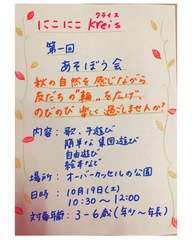 にこにこ Kreis
クライス
第一回
あそぼう会
秋の自然を感じながら
友だちの"輪"を広げ、
のびのび 楽しく 過ごしませんか?
内容：歌、手遊び
簡単な 集団遊び
自由遊び
絵本など
場所：オーバーカッセルの公園
日時：10月19日(土)
10:30 〜 12:00
対象年齢：3〜6歳(年少〜年長)